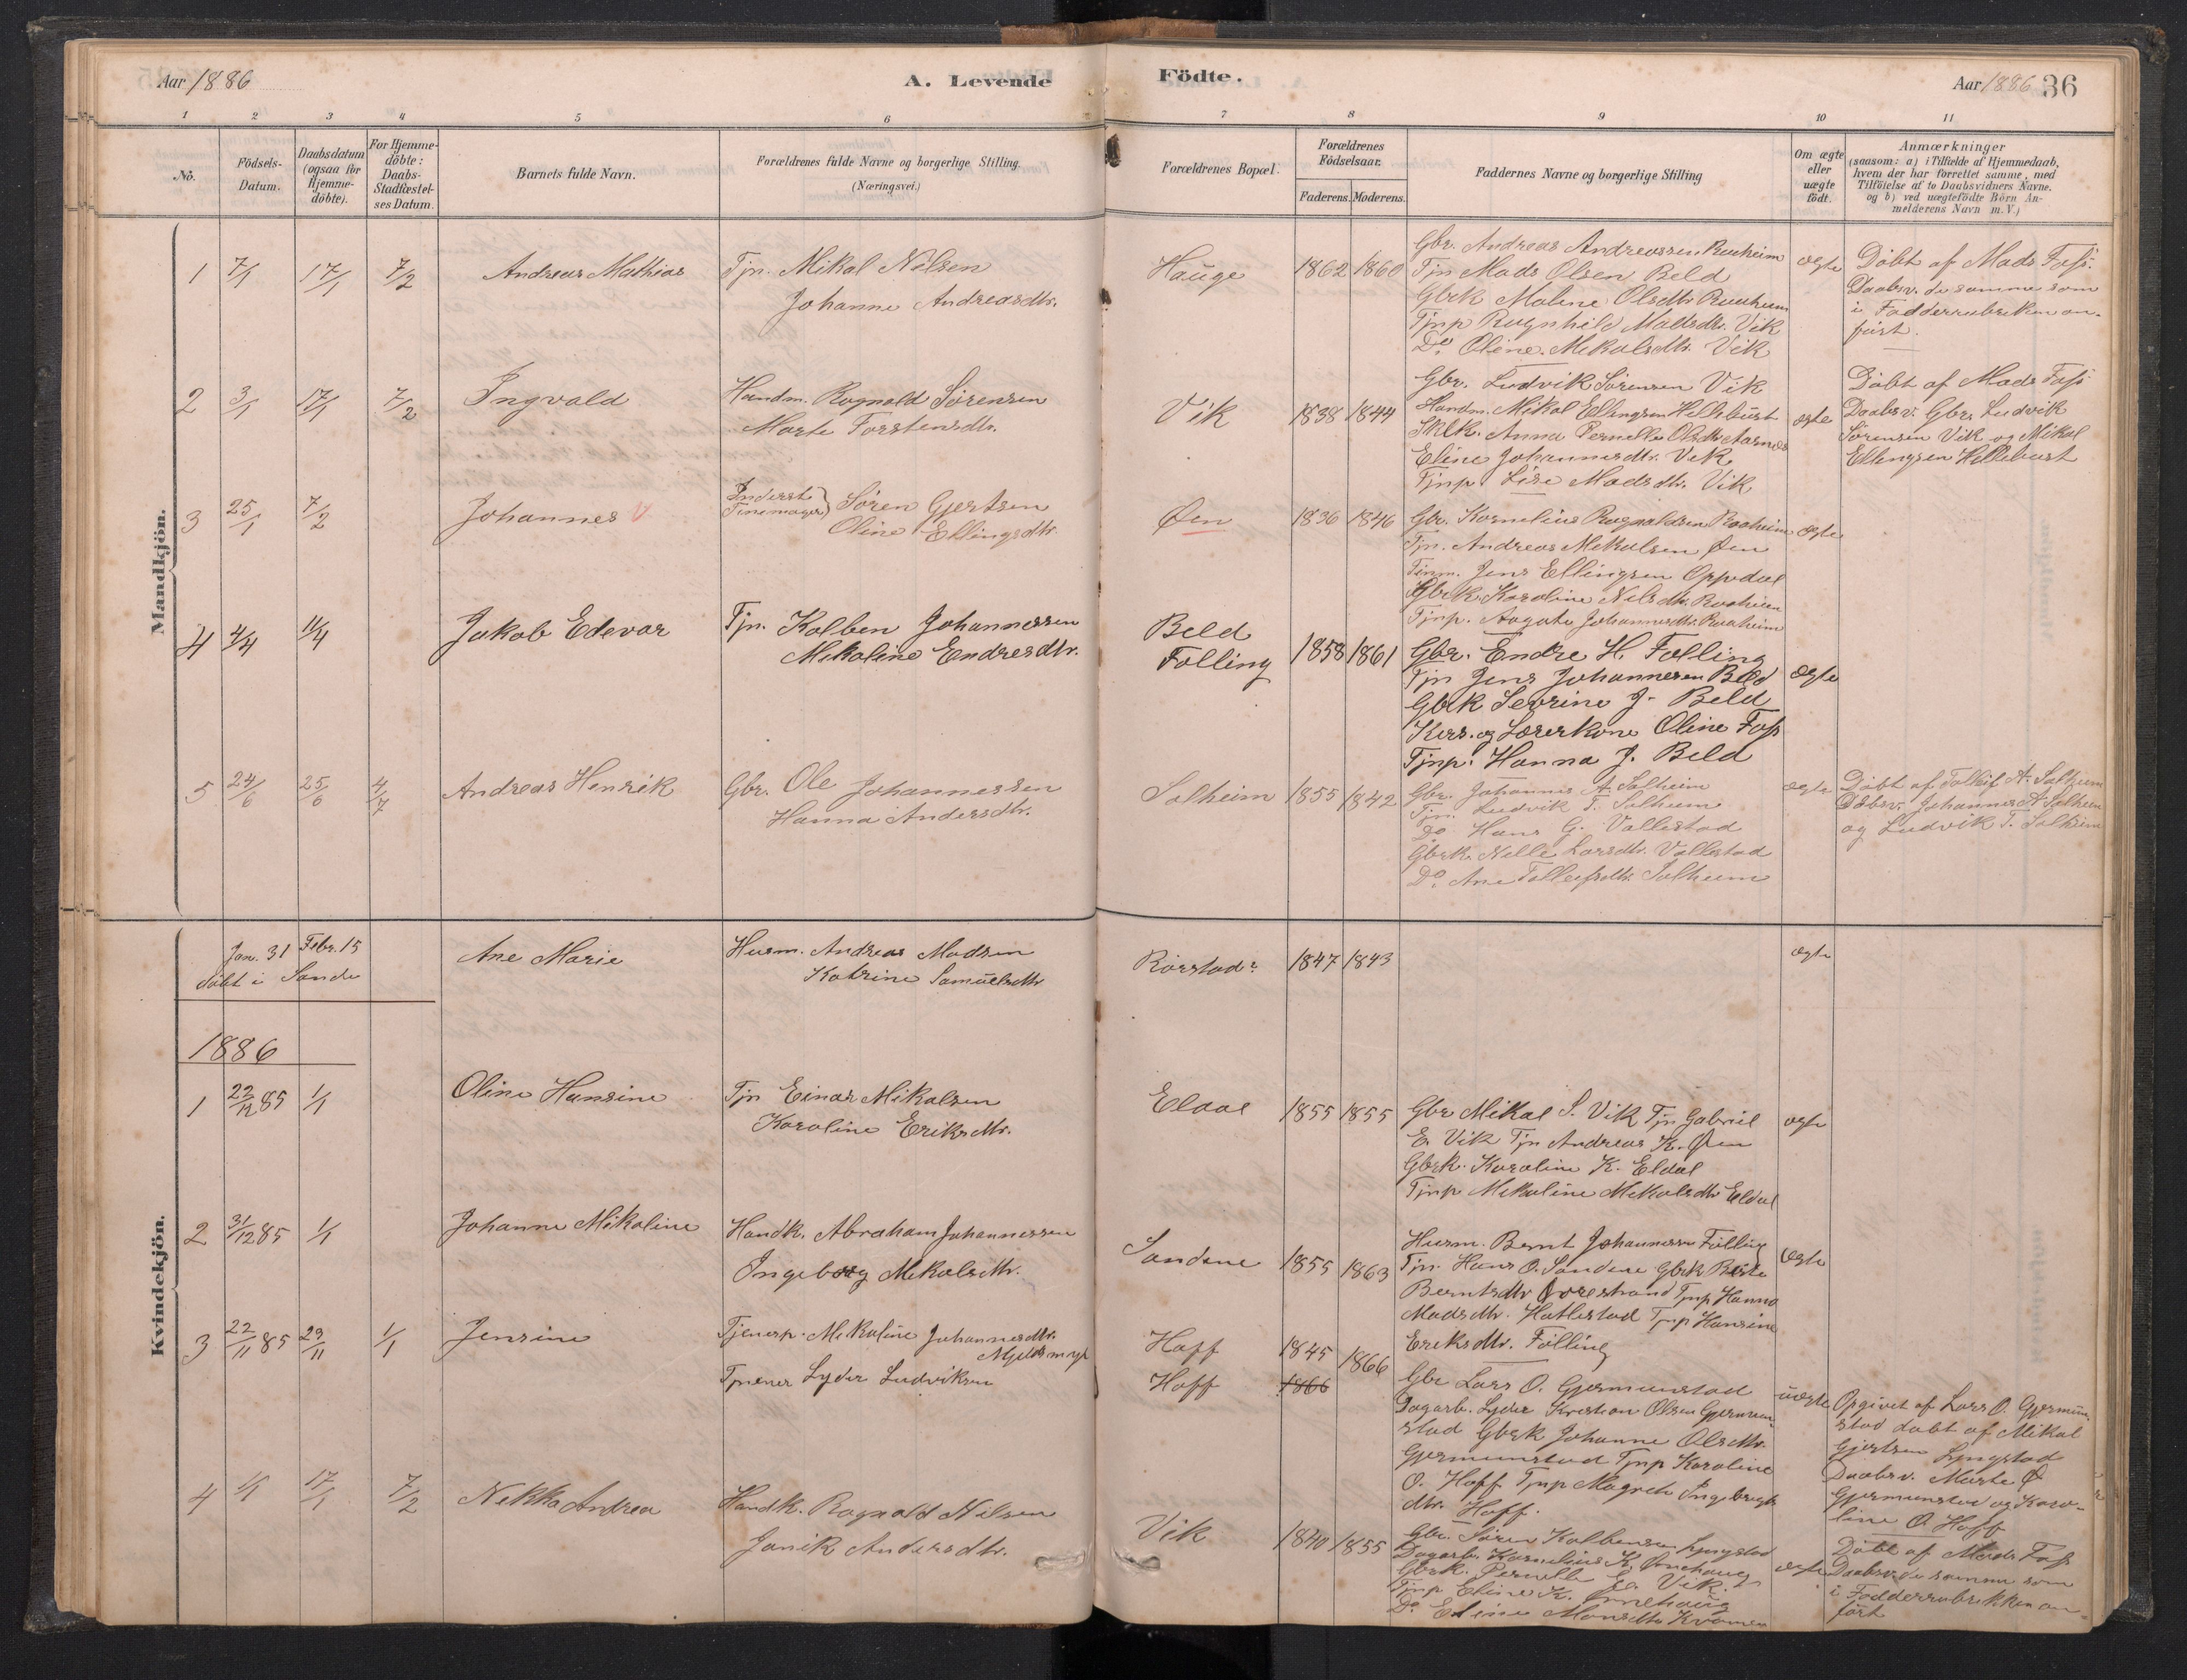 Aar 1886
A. Levende
Födte.
Aar 1886 36
1 2 3 4 5 6 7 8 9 10 11
No.
Födsels-Datum.
Daabsdatum (ogsaa for Hjemme-döbte).
For Hjemme-döbte: Daabs-Stadfæstel-ses Datum.
Barnets fulde Navn.
Forældrenes fulde Navne og borgerlige Stilling. (Næringsvei.)
Forældrenes Bopæl.
Forældrenes Födselsaar.
Faderens. Moderens.
Faddernes Navne og borgerlige Stilling
Om ægte eller uægte födt.
Anmærkninger
(saasom: a) i Tilfælde af Hjemmedaab,
hvem der har forrettet samme, med
Tilföielse af to Daabsvidners Navne.
og b) ved uægtefödte Börn An-
melderens Navn m.V.)
Mandkjön.
1 7/1 17/1 7/2 Andreas Mathias
Tjn. Mikal Nilsen
Johanne Andreasdtr.
Hauge 1862 1860
Gbr. Andreas Andreassen
Tjn Mads Olsen Beld
Gbrk Malene Olsdtr
Tjnp Ragnhild Madsdtr. Vik
Do. Oline Mikalsdtr. Vik
ægte
Döbt af Mads Foss.
Daabsv. de samme som
i Fadderrubriken an-
fört.
2 3/1 17/1 7/2 Ingvald
Handm. Ragnald Sörensen
Marte Torstensdtr.
Vik 1838 1844
Gbr. Ludvik Sörensen Vik
Handm. Mikal Ellingsen Hellebust
Anna Pernelle Olsdtr Aarnes
Eline Johannesdtr. Vik
Tjnp Lise Madsdtr. Vik
ægte
Döbt af Mads Foss
Daabsv. Gbr. Ludvik
Sörensen Vik og Mikal
Ellingsen Hellebust
3 25/1 7/2 Johannes V
Inderst Tinemager} Sören Gjertsen
Oline Ellingsdtr.
Øen 1836 1846
Gbr. Kornelius Ragnaldsen
Tjn. Andreas Mikalsen Øen
Jens Ellingsen Oppedal
Gbrk. Karoline Nilsdtr.
Tjnp. Aagate Johannesdtr.
ægte
4 4/4 11/4 Jakob Edevar
Tjn. Kolben Johannessen
Mikaline Endresdtr.
Beld
Folling
1858 1861
Gbr. Endre H. Folling
Tjn Jens Johannesen Beld
Gbrk Sevrine J. Beld
Kirs. og Lærerkone Oline Foss
Tjnp. Hanna J. Beld
ægte
5 24/6 25/6 4/7 Andreas Henrik
Gbr. Ole Johannessen
Hanna Andersdtr.
Solheim 1855 1842
Gbr. Johannes A. Solheim
Tjn. Ludvik T. Solheim
Do Hans G. Vallestad
Gbrk. Nille Larsdtr. Vallestad
Do. Ane Tollefsdtr. Solheim
ægte
Döbt af Tollef A. Solheim
Daabsv. Johannes A. Solheim
og Ludvik T. Solheim
Kvindekjön.
Jan. 31 Febr. 15
döbt i Sande
Ane Marie
Husm. Andreas Madsen
Katrine Samuelsdtr
Rörstad 1847 1843
ægte
1886
1 22/12 85 1/1 Oline Hansine
Tjn Einar Mikalsen
Karoline Eriksdtr.
Eldal 1855 1855
Gbr Mikal S. Vik Tjn Gabriel
E. Vik Tjn Andreas K. Øen
Gbrk. Karoline K. Eldal
Tjnp Mikaline Mikalsdtr Eldal
ægte
2 31/12 85 1/1 Johanne Mikaline
Handk. Abraham Johannessen
Ingeborg Mikalsdtr.
Sandene 1855 1863
Husm. Bernt Johannessen Fölling
Tjn. Hans O. Sandene Gbrk Berte
Berntsdtr Tjnp Hanna
Madsdtr. Hatlestad Tjnp Hansine
Eriksdtr. Fölling
ægte
3 22/11 85 29/11 1/1 Jensine
Tjenerp. Mikaline Johannesdtr.
Tjener Lyder Ludviksen
Hoff 1845
Hoff 1866 1866
Gbr Lars O. Gjermunstad
Dagarb. Lyder Kristian Olsen Gjermun-
stad Gbrk Johanne Olsdtr.
Gjermunstad Tjnp Karoline
O. Hoff Tjnp Magrete Ingebrigts
dtr. Hoff.
uægte
Opgivet af Lars O. Gjermun-
stad döbt af Mikal
Gjertsen Lyngstad
Daabsv. Marte O
Gjermunstad og Karo-
line O. Hoff
4 1/1 17/1 7/2 Nikka Andrea
Handk. Ragnald Nilsen
Janik Andersdtr.
Vik 1840 1855
Gbr. Sören Kolbensen Lyngstad
Dagarb. Kornelius K. Önnehaug
Gbrk. Pernelle E. Vik.
Tjnp Eline K. Önnehaug
Do Eline Monsdtr Kvamen
ægte
Döbt af Mads Foss
Daabsv. de samme som
i Fadderrubrikken an-
fört